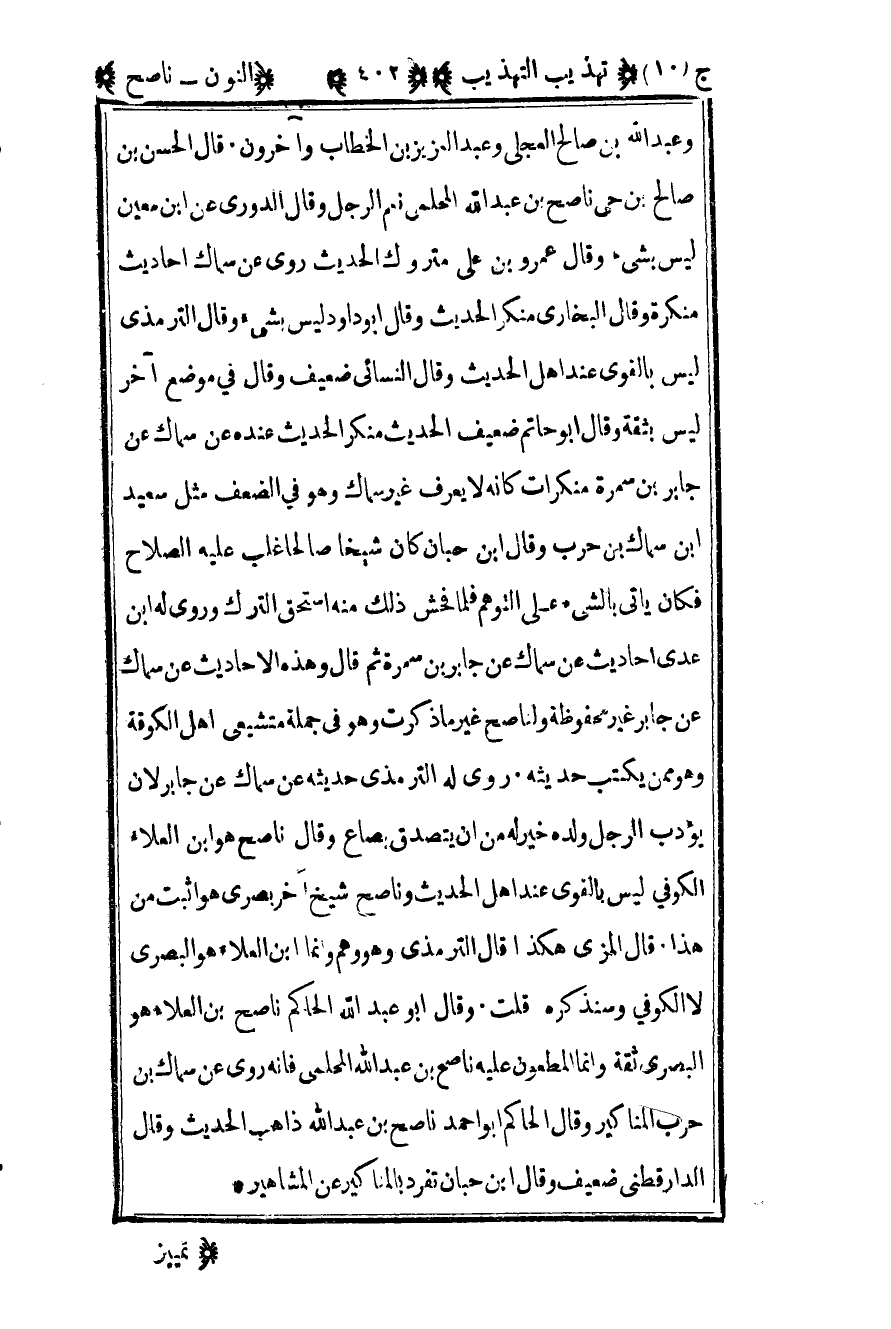 ج (١٠) ﴿ تهذيب التهذيب ﴾ ﴿ ٤٠٢ ﴾ ﴿ النون ـ ناصح ﴾
وعبد الله بن صالح العجلى وعبد العزيز بن الخطاب وآخرون · قال الحسن بن
صالح بن حى ناصح بن عبد الله المحلمى نعم الرجل وقال الدورى عن ابن معين
ليس بشىء وقال عمرو بن على متروك الحديث روى عن سماك احاديث
منكرة وقال البخارى منكر الحديث وقال ابو داود ليس بشىء وقال الترمذى
ليس بالقوى عند اهل الحديث وقال النسائى ضعيف وقال في موضع آخر
ليس بثقة وقال ابو حاتم ضعيف الحديث منكر الحديث عنده عن سماك عن
جابر بن سمرة منكرات كانه لا يعرف غير سماك وهو في الضعف مثل سعيد
ابن سماك بن حرب وقال ابن حبان كان شيخا صالحا غلب عليه الصلاح
فكان ياتى بالشىء على التوهم فلما فحش ذلك منه استحق الترك وروى له ابن
عدى احاديث عن سماك عن جابر بن سمرة ثم قال وهذه الاحاديث عن سماك
عن جابر غير محفوظة ولناصح غير ما ذكرت وهو فى جملة متشيعى اهل الكوفة
وهو ممن يكتب حديثه · روى له الترمذى حديثه عن سماك عن جابر لان
يؤدب الرجل ولده خير له من ان يتصدق بصاع وقال ناصح هو ابن العلاء
الكوفي ليس بالقوى عند اهل الحديث وناصح شيخ آخر بصرى هو اثبت من
هذا · قال المزى هكذا قال الترمذى وهو وهم وانما ابن العلاء هو البصرى
لا الكوفي وسنذكره قلت · وقال ابو عبد الله الحاكم ناصح بن العلاء هو
البصرى ثقة وانما المطعون عليه ناصح بن عبد الله المحلمى فانه روى عن سماك بن
حرب المناكير وقال الحاكم ابو احمد ناصح بن عبد الله ذاهب الحديث وقال
الدارقطنى ضعيف وقال ابن حبان تفرد بالمناكير عن المشاهير *
﴿ تمييز